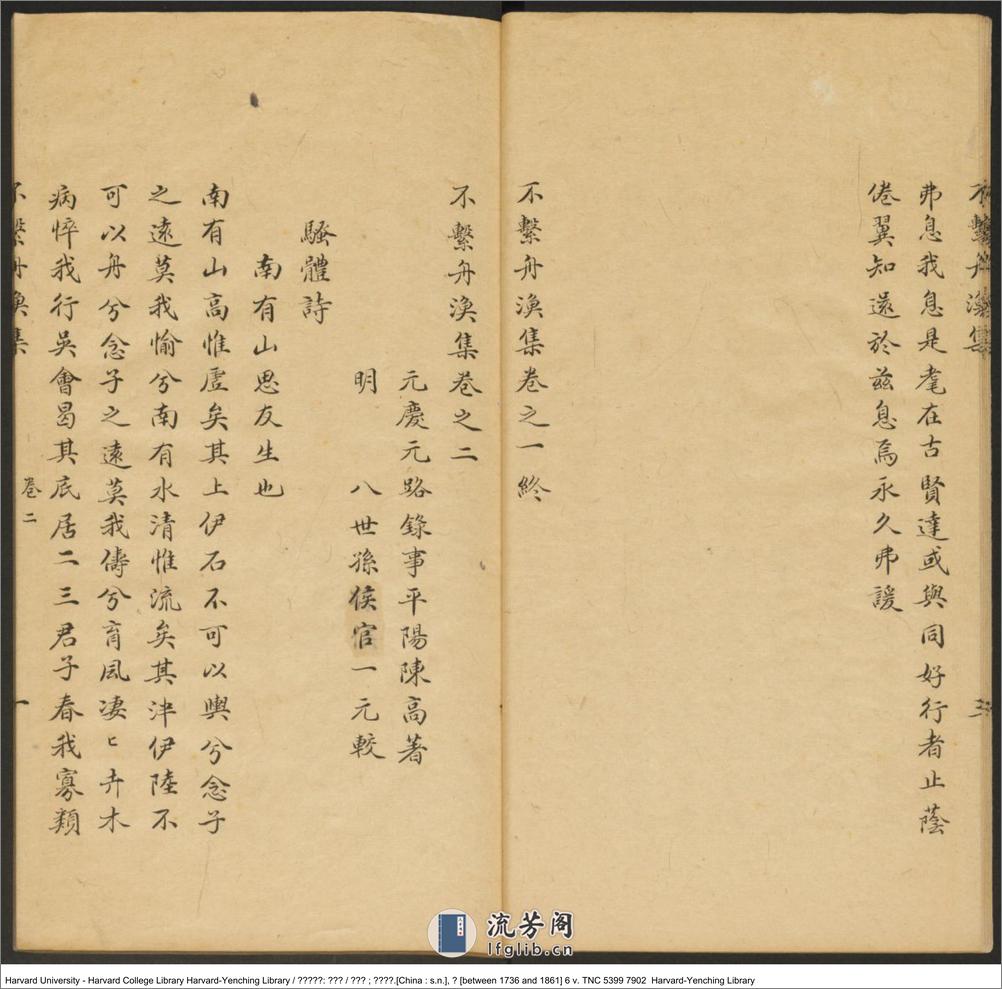 不繫舟漁集
三
弗息我息是耄在古賢達或與同好行者止蔭
倦翼知還於茲息焉永久弗諼
不繫舟漁集卷之一終
不繫舟漁集卷之二
元慶元路錄事平陽陳高著
明 八世孫侯官一元較
騷體詩
南有山思友生也
南有山高惟虗矣其上伊石不可以輿兮念子
之遠莫我愉兮南有水清惟流矣其津伊陸不
可以舟兮念子之遠莫我儔兮育風凄〻卉木
病悴我行吳會曷其底居二三君子春我寡類
不繫舟漁集
卷二
一
流芳阁
lfglib.cn
Harvard University - Harvard College Library Harvard-Yenching Library / ?????: ??? / ??? ; ????.[China : s.n.], ? [between 1736 and 1861] 6 v. TNC 5399 7902 Harvard-Yenching Library